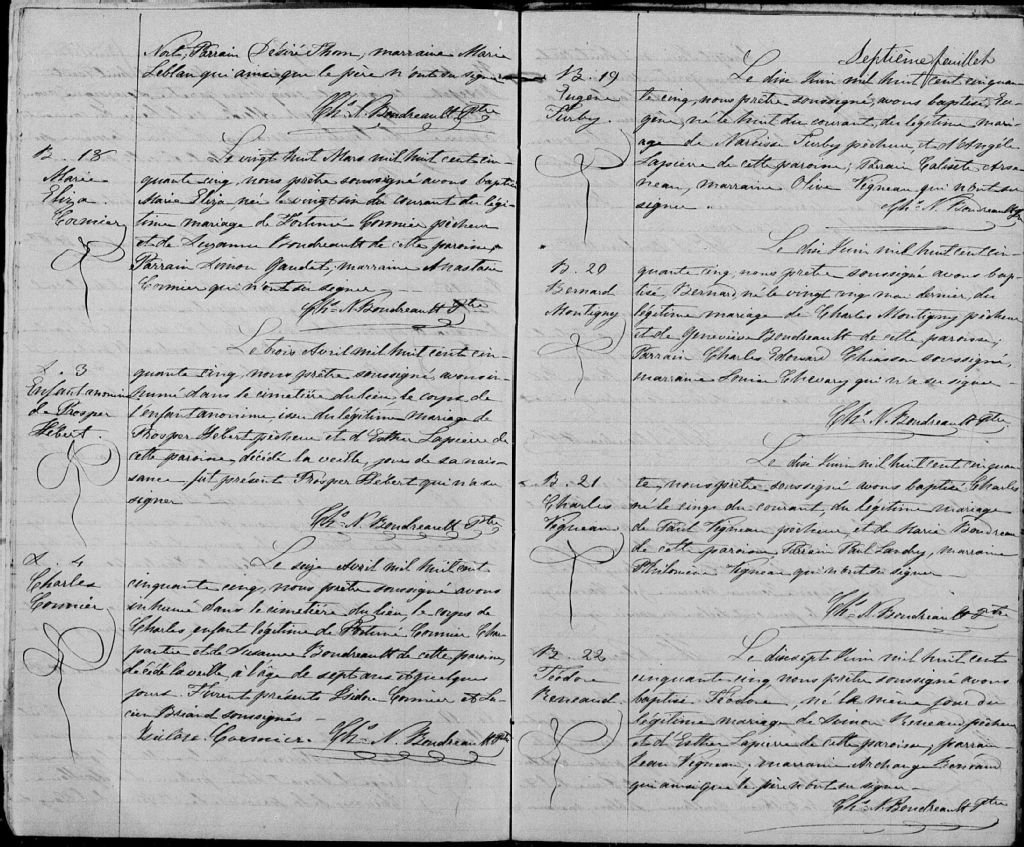 Nort, Parrain Désiré Thom, marraine Marie
Leblan qui ainsi que le père n'ont su signer
Chs. N. Boudreault Ptre
B. 18
Marie
Eliza
Cormier
Le vingt huit Mars mil huit cent cin-
quante cinq, nous prêtre soussigné avons baptisé
Marie Eliza née le vingt six du courant du légi-
time mariage de Fortuné Cormier pêcheur
et de Suzanne Boudreault de cette paroisse,
Parrain Simon Gaudet, marraine Anastasie
Cormier qui n'ont su signer
Chs. N. Boudreault Ptre
S. 3
Enfant anonime
de Prosper
Hébert.
Le trois Avril mil huit cent cin-
quante cinq, nous prêtre soussigné, avons in-
humé dans le cimetière du lieu, le corps de
l'enfant anonime, issu du légitime mariage de
Prosper Hebert pêcheur et d'Esther Lapierre de
cette paroisse, décédé la veille, jour de sa nais-
sance, fut présente Prosper Hebert qui n'a su
signer
Chs. N. Boudreault Ptre
S. 4
Charles
Cormier.
Le seize Avril mil huit cent
cinquante cinq, nous prêtre soussigné avons
inhumé dans le cimetière du lieu, le corps de
Charles, enfant légitime de Fortuné Cormier Cha-
partie et de Susanne Boudreault de cette paroisse,
décédé la veille à l'âge de sept ans et quelques
jours. Furent présents Isidore Cormier et Lu-
cien Briand soussignés
Isidore Cormier. Chs. N. Boudreault Ptre
Septième feuillet
B. 19
Eugène
Turby.
Le dix Juin mil huit cent cinquan-
te cinq, nous prêtre soussigné, avons baptisé, Eu-
gène, né le huit du courant, du légitime mari-
age de Narcisse Turby pêcheur, et d'Angèle
Lapierre de cette paroisse; Parrain Calixte Arse-
neau, marraine Olive Vigneau qui n'ont su
signer.
Chs. N. Boudreault Ptre
B. 20
Bernard
Montigny
Le dix Juin mil huit cent cin-
quante cinq, nous prêtre soussigné avons bap-
tisé Bernard, né le vingt cinq mai dernier, du
légitime mariage de Charles Montigny pêcheur
et de Geneviève Boudreault de cette paroisse;
Parrain Charles Edouard Chiasson soussigné,
marraine Louise Chevary qui n'a su signer
Chs. N. Boudreault Ptre
B. 21
Charles
Vigneau
Le dix Juin mil huit cent cinquan-
te, nous prêtre soussigné avons baptisé Charles
né le cinq du courant, du légitime mariage
de Paul Vigneau, pêcheur, et de Marie Boudreau
de cette paroisse, Parrain Paul Landry, marraine
Philomène Vigneau qui n'ont su signer
Chs. N. Boudreault Ptre
B. 22
Téodore
Reneaud
Le dixsept Juin mil huit cent
cinquante cinq nous prêtre soussigné avons
baptisé Téodore, né le même jour du
légitime mariage de Simon Reneau, pêcheur
et d'Esther Lapierre de cette paroisse, parrain
Jean Vigneau, marraine Archange Renaud
qui ainsi que le père n'ont su signer.
Chs. N. Boudreault Ptre